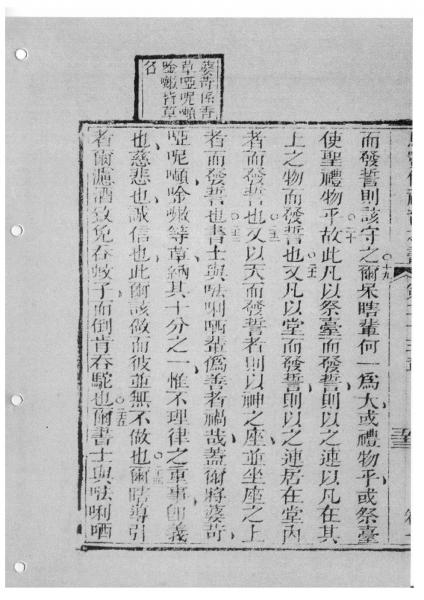 葵苛係香
草啞呢
皆草
名
而發誓則該守之十九爾呆瞎輩何一爲大或禮物乎或祭臺
使聖禮物乎二十故此凡以祭臺而發誓則以之連以凡在其
上之物而發誓也二一又凡以堂而發誓則以之連居在堂內
者而發誓也二二又以天而發誓者則以神之座並坐座之上
者而發誓也二三書士與唎哂輩僞善者禍哉蓋爾將葵苛
啞呢等草納其十分之一惟不理律之重事即義
也慈悲也誠信也此爾該做而彼並無不做也二四爾瞎導引
者爾濾酒致免吞蚊子而倒肯吞駝也二五爾書士與唎哂